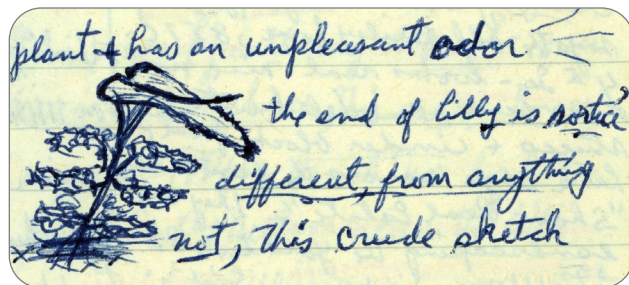 plant & has an unpleasant odor
the end of lilly is
different, from anything
not, This crude sketch